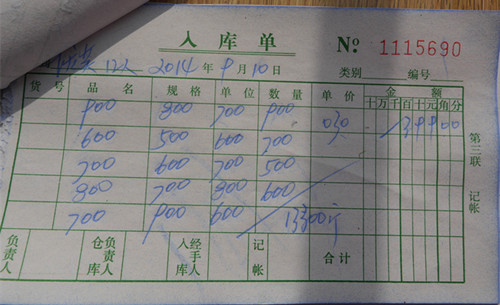 入库单 No 1115690
2014年9月10日 类别 编号
货号 品名 规格 单位 数量 单价 金额
十万千百十元角分
900 800 700 900
600 500 600 700
700 600 700 500
800 700 800 600
700 900 600
负责人 仓库负责人 入库经手人 记帐 合计
第三联 记帐